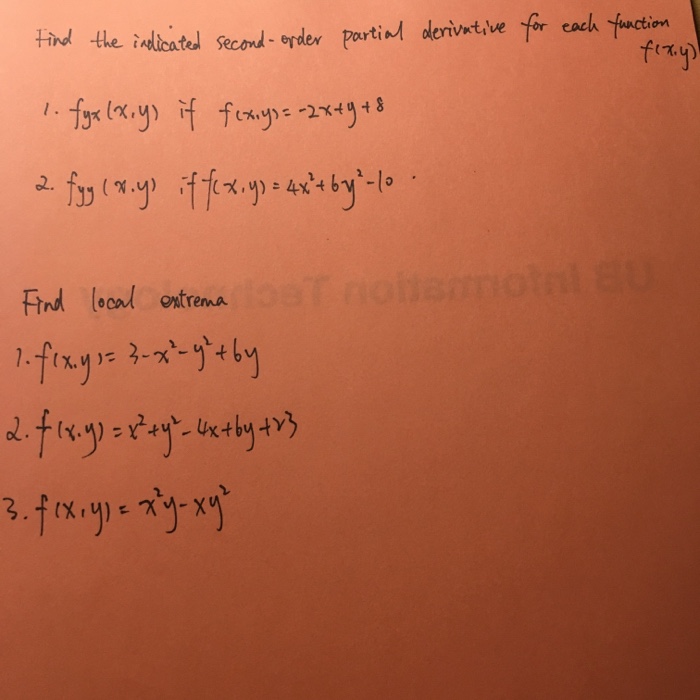 Find the indicated second-order partial derivative for each function
f(x,y)
1. fyx(x,y) if f(x,y)=-2x+y+8
2. fyy(x,y) if f(x,y)=4x²+6y²-10.
UB Information Technology
Find local extrema
1. f(x,y)=3-x²-y²+6y
2. f(x,y)=x²+y²-4x+6y+23
3. f(x,y)=x²y-xy²